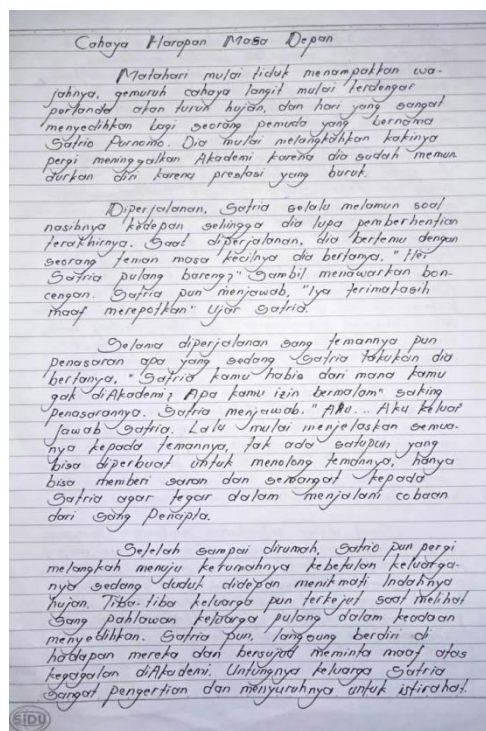 Cahaya Harapan Masa Depan
Matahari mulai tidak menampakkan wa-
jahnya, gemuruh cahaya langit mulai terdengar
pertanda akan turun hujan, dan hari yang sangat
menyedihkan bagi seorang pemuda yang bernama
Satrio Purnomo. Dia mulai melangkahkan kakinya
pergi meninggalkan Akademi karena dia sudah memun
durkan diri karena prestasi yang buruk.
Diperjalanan, Satria selalu melamun soal
nasibnya kedepan sehingga dia lupa pemberhentian
terakhirnya. Saat diperjalanan, dia bertemu dengan
seorang teman masa kecilnya dia bertanya. "Hei
Satria pulang bareng?" Sambil menawarkan bon-
cengan. Satria pun menjawab, "Iya terimakasih
maaf merepotkan" Ujar Satria.
Selama diperjalanan sang temannya pun
penasaran apa yang sedang Satria lakukan dia
bertanya, "Satria kamu habis dari mana kamu
gak diAkademi? Apa kamu izin bermalam" saking
penasarannya. Satria menjawab. "Aku... Aku keluar
Jawab Satria. Lalu mulai menjelaskan semua-
nya kepada temannya, tak ada satupun yang
bisa diperbuat untuk menolong temannya, hanya
bisa memberi saran dan semangat kepada
Satria agar tegar dalam menjalani cobaan
dari Sang Pencipta.
Setelah sampai dirumah, Satrio pun pergi
melangkah menuju kerumahnya kebetulan keluarga-
nya sedang duduk didepan menikmati Indahnya
hujan. Tiba-tiba keluarga pun terkejut saat melihat
Sang pahlawan keluarga pulang dalam keadaan
menyedihkan. Satria pun, langsung berdiri di
hadapan mereka dan bersujud meminta maaf atas
kegagalan diAkademi. Untungnya keluarga Satria
Sangat pengertian dan menyuruhnya untuk istirahat.
SIDU